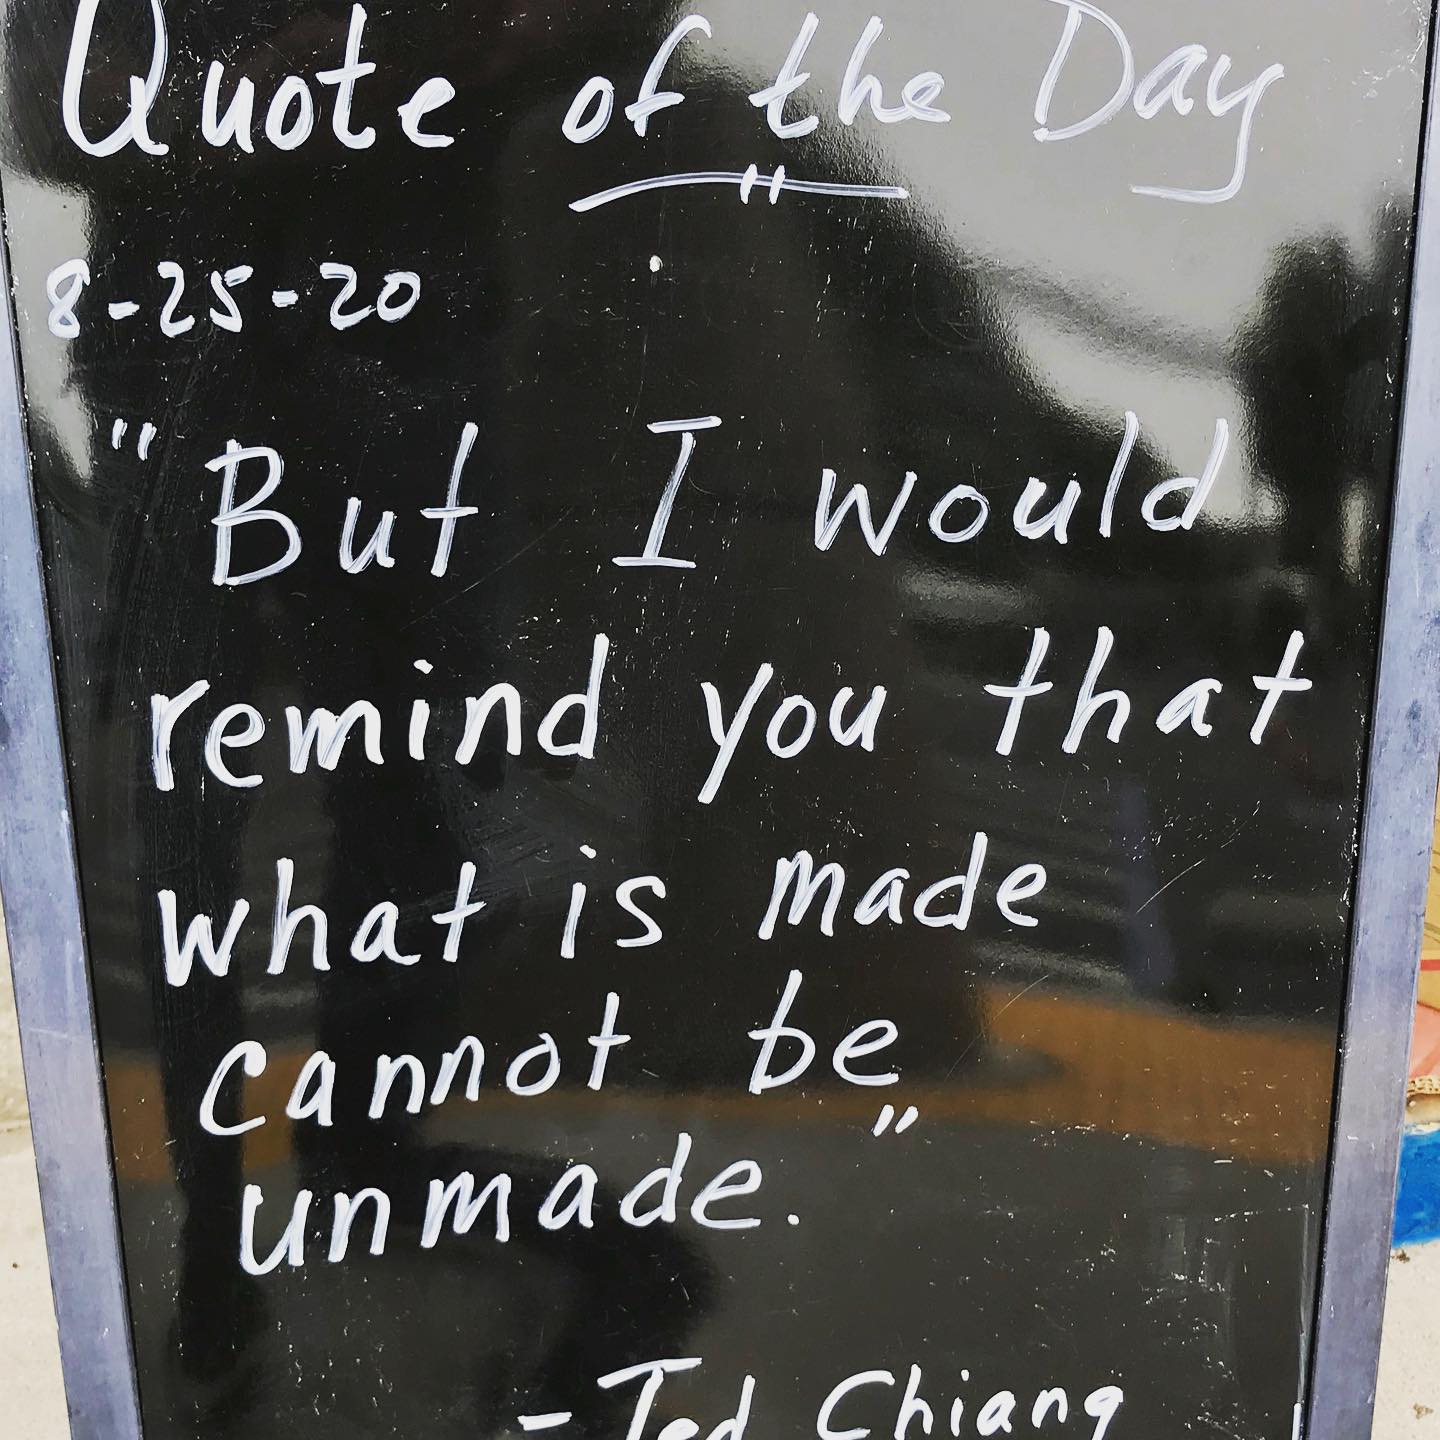 Quote of the Day
"
8-25-20
"But I would
remind you that
what is made
cannot be
unmade."
- Ted Chiang